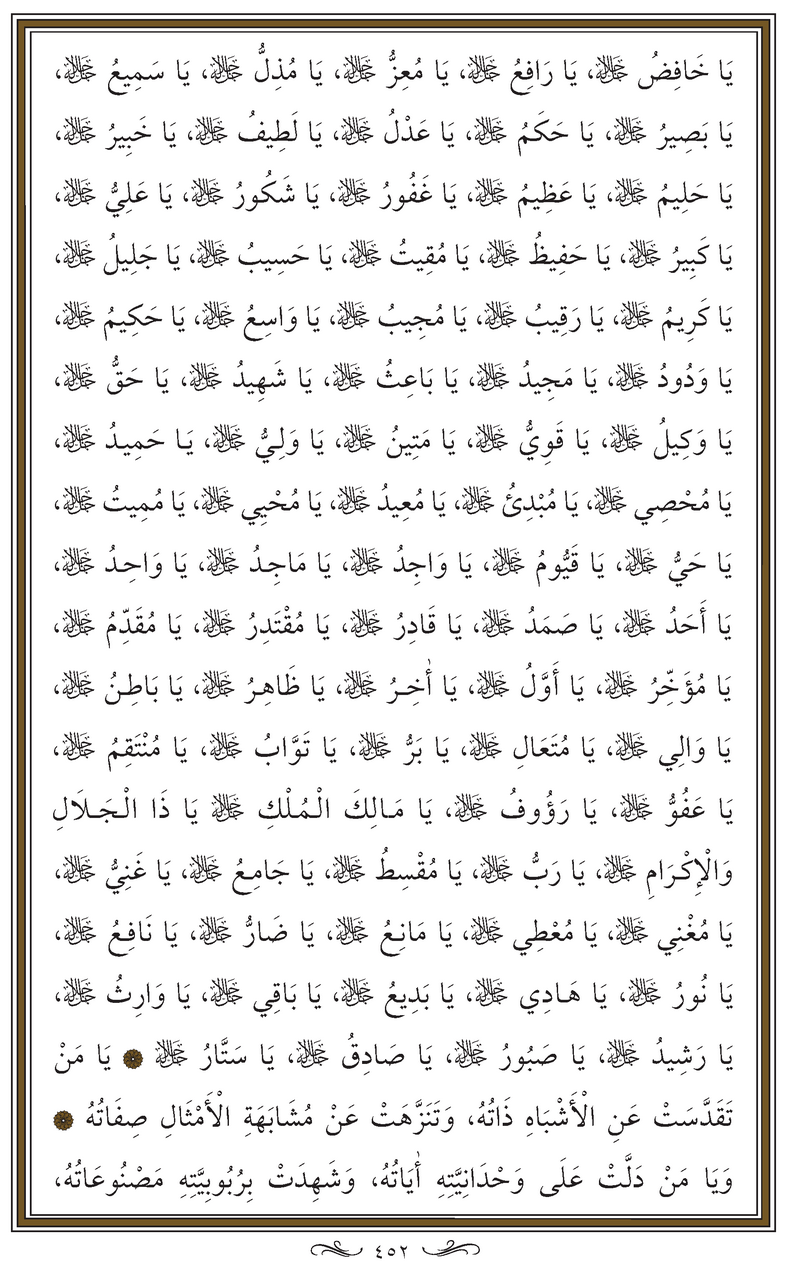 يَا خَافِضُ ﷻ، يَا رَافِعُ ﷻ، يَا مُعِزُّ ﷻ، يَا مُذِلُّ ﷻ، يَا سَمِيعُ ﷻ،
يَا بَصِيرُ ﷻ، يَا حَكَمُ ﷻ، يَا عَدْلُ ﷻ، يَا لَطِيفُ ﷻ، يَا خَبِيرُ ﷻ،
يَا حَلِيمُ ﷻ، يَا عَظِيمُ ﷻ، يَا غَفُورُ ﷻ، يَا شَكُورُ ﷻ، يَا عَلِيُّ ﷻ،
يَا كَبِيرُ ﷻ، يَا حَفِيظُ ﷻ، يَا مُقِيتُ ﷻ، يَا حَسِيبُ ﷻ، يَا جَلِيلُ ﷻ،
يَا كَرِيمُ ﷻ، يَا رَقِيبُ ﷻ، يَا مُجِيبُ ﷻ، يَا وَاسِعُ ﷻ، يَا حَكِيمُ ﷻ،
يَا وَدُودُ ﷻ، يَا مَجِيدُ ﷻ، يَا بَاعِثُ ﷻ، يَا شَهِيدُ ﷻ، يَا حَقُّ ﷻ،
يَا وَكِيلُ ﷻ، يَا قَوِيُّ ﷻ، يَا مَتِينُ ﷻ، يَا وَلِيُّ ﷻ، يَا حَمِيدُ ﷻ،
يَا مُحْصِي ﷻ، يَا مُبْدِئُ ﷻ، يَا مُعِيدُ ﷻ، يَا مُحْيِي ﷻ، يَا مُمِيتُ ﷻ،
يَا حَيُّ ﷻ، يَا قَيُّومُ ﷻ، يَا وَاجِدُ ﷻ، يَا مَاجِدُ ﷻ، يَا وَاحِدُ ﷻ،
يَا أَحَدُ ﷻ، يَا صَمَدُ ﷻ، يَا قَادِرُ ﷻ، يَا مُقْتَدِرُ ﷻ، يَا مُقَدِّمُ ﷻ،
يَا مُؤَخِّرُ ﷻ، يَا أَوَّلُ ﷻ، يَا أٰخِرُ ﷻ، يَا ظَاهِرُ ﷻ، يَا بَاطِنُ ﷻ،
يَا وَالِي ﷻ، يَا مُتَعَالِ ﷻ، يَا بَرُّ ﷻ، يَا تَوَّابُ ﷻ، يَا مُنْتَقِمُ ﷻ،
يَا عَفُوُّ ﷻ، يَا رَؤُوفُ ﷻ، يَا مَالِكَ الْمُلْكِ ﷻ يَا ذَا الْجَلَالِ
وَالْإِكْرَامِ ﷻ، يَا رَبُّ ﷻ، يَا مُقْسِطُ ﷻ، يَا جَامِعُ ﷻ، يَا غَنِيُّ ﷻ،
يَا مُغْنِي ﷻ، يَا مُعْطِي ﷻ، يَا مَانِعُ ﷻ، يَا ضَارُّ ﷻ، يَا نَافِعُ ﷻ،
يَا نُورُ ﷻ، يَا هَادِي ﷻ، يَا بَدِيعُ ﷻ، يَا بَاقِي ﷻ، يَا وَارِثُ ﷻ،
يَا رَشِيدُ ﷻ، يَا صَبُورُ ﷻ، يَا صَادِقُ ﷻ، يَا سَتَّارُ ﷻ يَا مَنْ
تَقَدَّسَتْ عَنِ الْأَشْبَاهِ ذَاتُهُ، وَتَنَزَّهَتْ عَنْ مُشَابَهَةِ الْأَمْثَالِ صِفَاتُهُ
وَيَا مَنْ دَلَّتْ عَلَى وَحْدَانِيَّتِهِ أٰيَاتُهُ، وَشَهِدَتْ بِرُبُوبِيَّتِهِ مَصْنُوعَاتُهُ،
٤٥٢